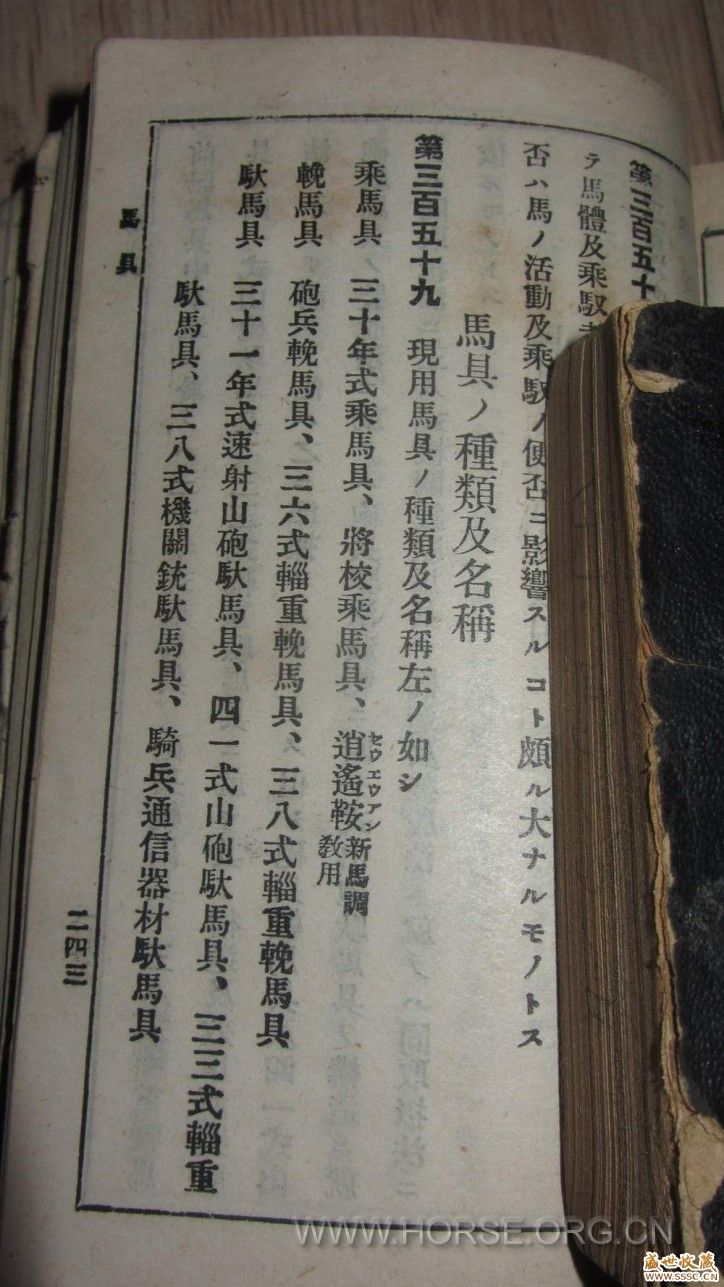 第三百五十
テ馬體及乘馭
否ハ馬ノ活動及乘馭ノ便否ニ影響スルコト頗ル大ナルモノトス
馬具ノ種類及名稱
第三百五十九 現用馬具ノ種類及名稱左ノ如シ
乘馬具 三十年式乘馬具、將校乘馬具、逍遙鞍新馬調教用
セウエウアン
輓馬具 砲兵輓馬具、三六式輜重輓馬具、三八式輜重輓馬具
馱馬具 三十一年式速射山砲馱馬具、四一式山砲馱馬具、三三式輜重
馱馬具、三八式機關銃馱馬具、騎兵通信器材馱馬具
馬具
二四三
WWW.HORSE.ORG.CN
盛世收藏
www.sssc.cn